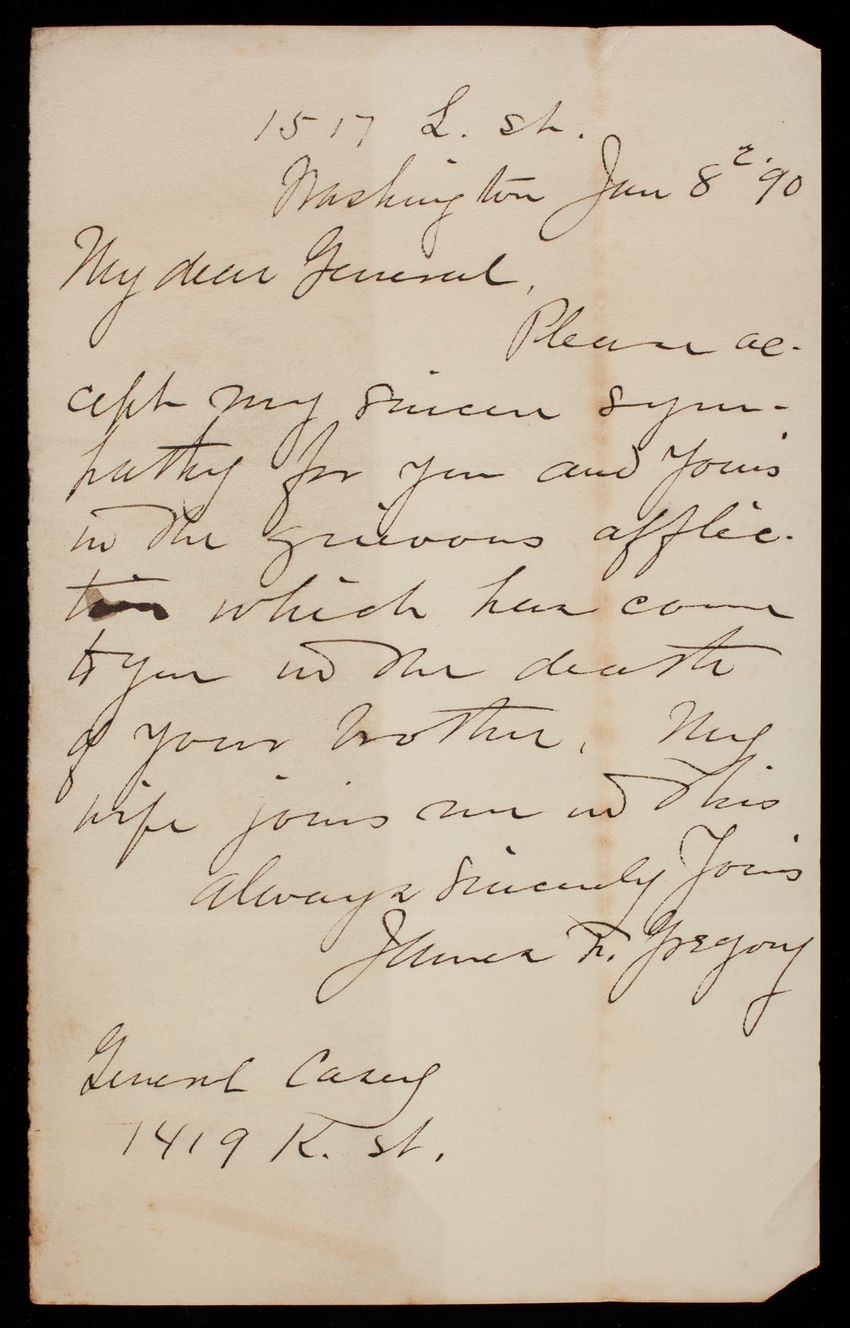 1517 L. St.
Washington Jan 8th '90
My dear General,
Please ac-
cept my sincere sym-
pathy for you and yours
in the grievous afflic-
tion which has come
to you in the death
of your brother. My
wife joins me in this
Always Sincerely Yours
James F. Gregory
General Casey
1419 K. St.